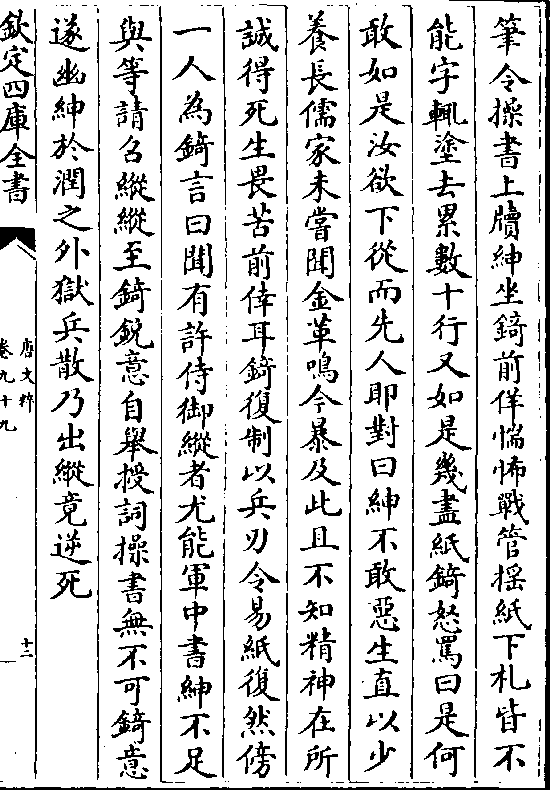 筆令操書上牘紳坐錡前佯惴怖戰管揺紙下札皆不
能字輒塗去累數十行又如是幾盡紙錡怒罵曰是何
敢如是汝欲下從而先人即對曰紳不敢惡生直以少
養長儒家未嘗聞金革鳴今暴及此且不知精神在所
誠得死生畏苦前倖耳錡復制以兵刃令易紙復然傍
一人為錡言曰聞有許侍御縱者尤能軍中書紳不足
與等請召縱縱至錡銳意自舉授詞操書無不可錡意
遂幽紳於潤之外獄兵散乃出縱竟逆死
欽定四庫全書
唐文粹
卷九十九
十二